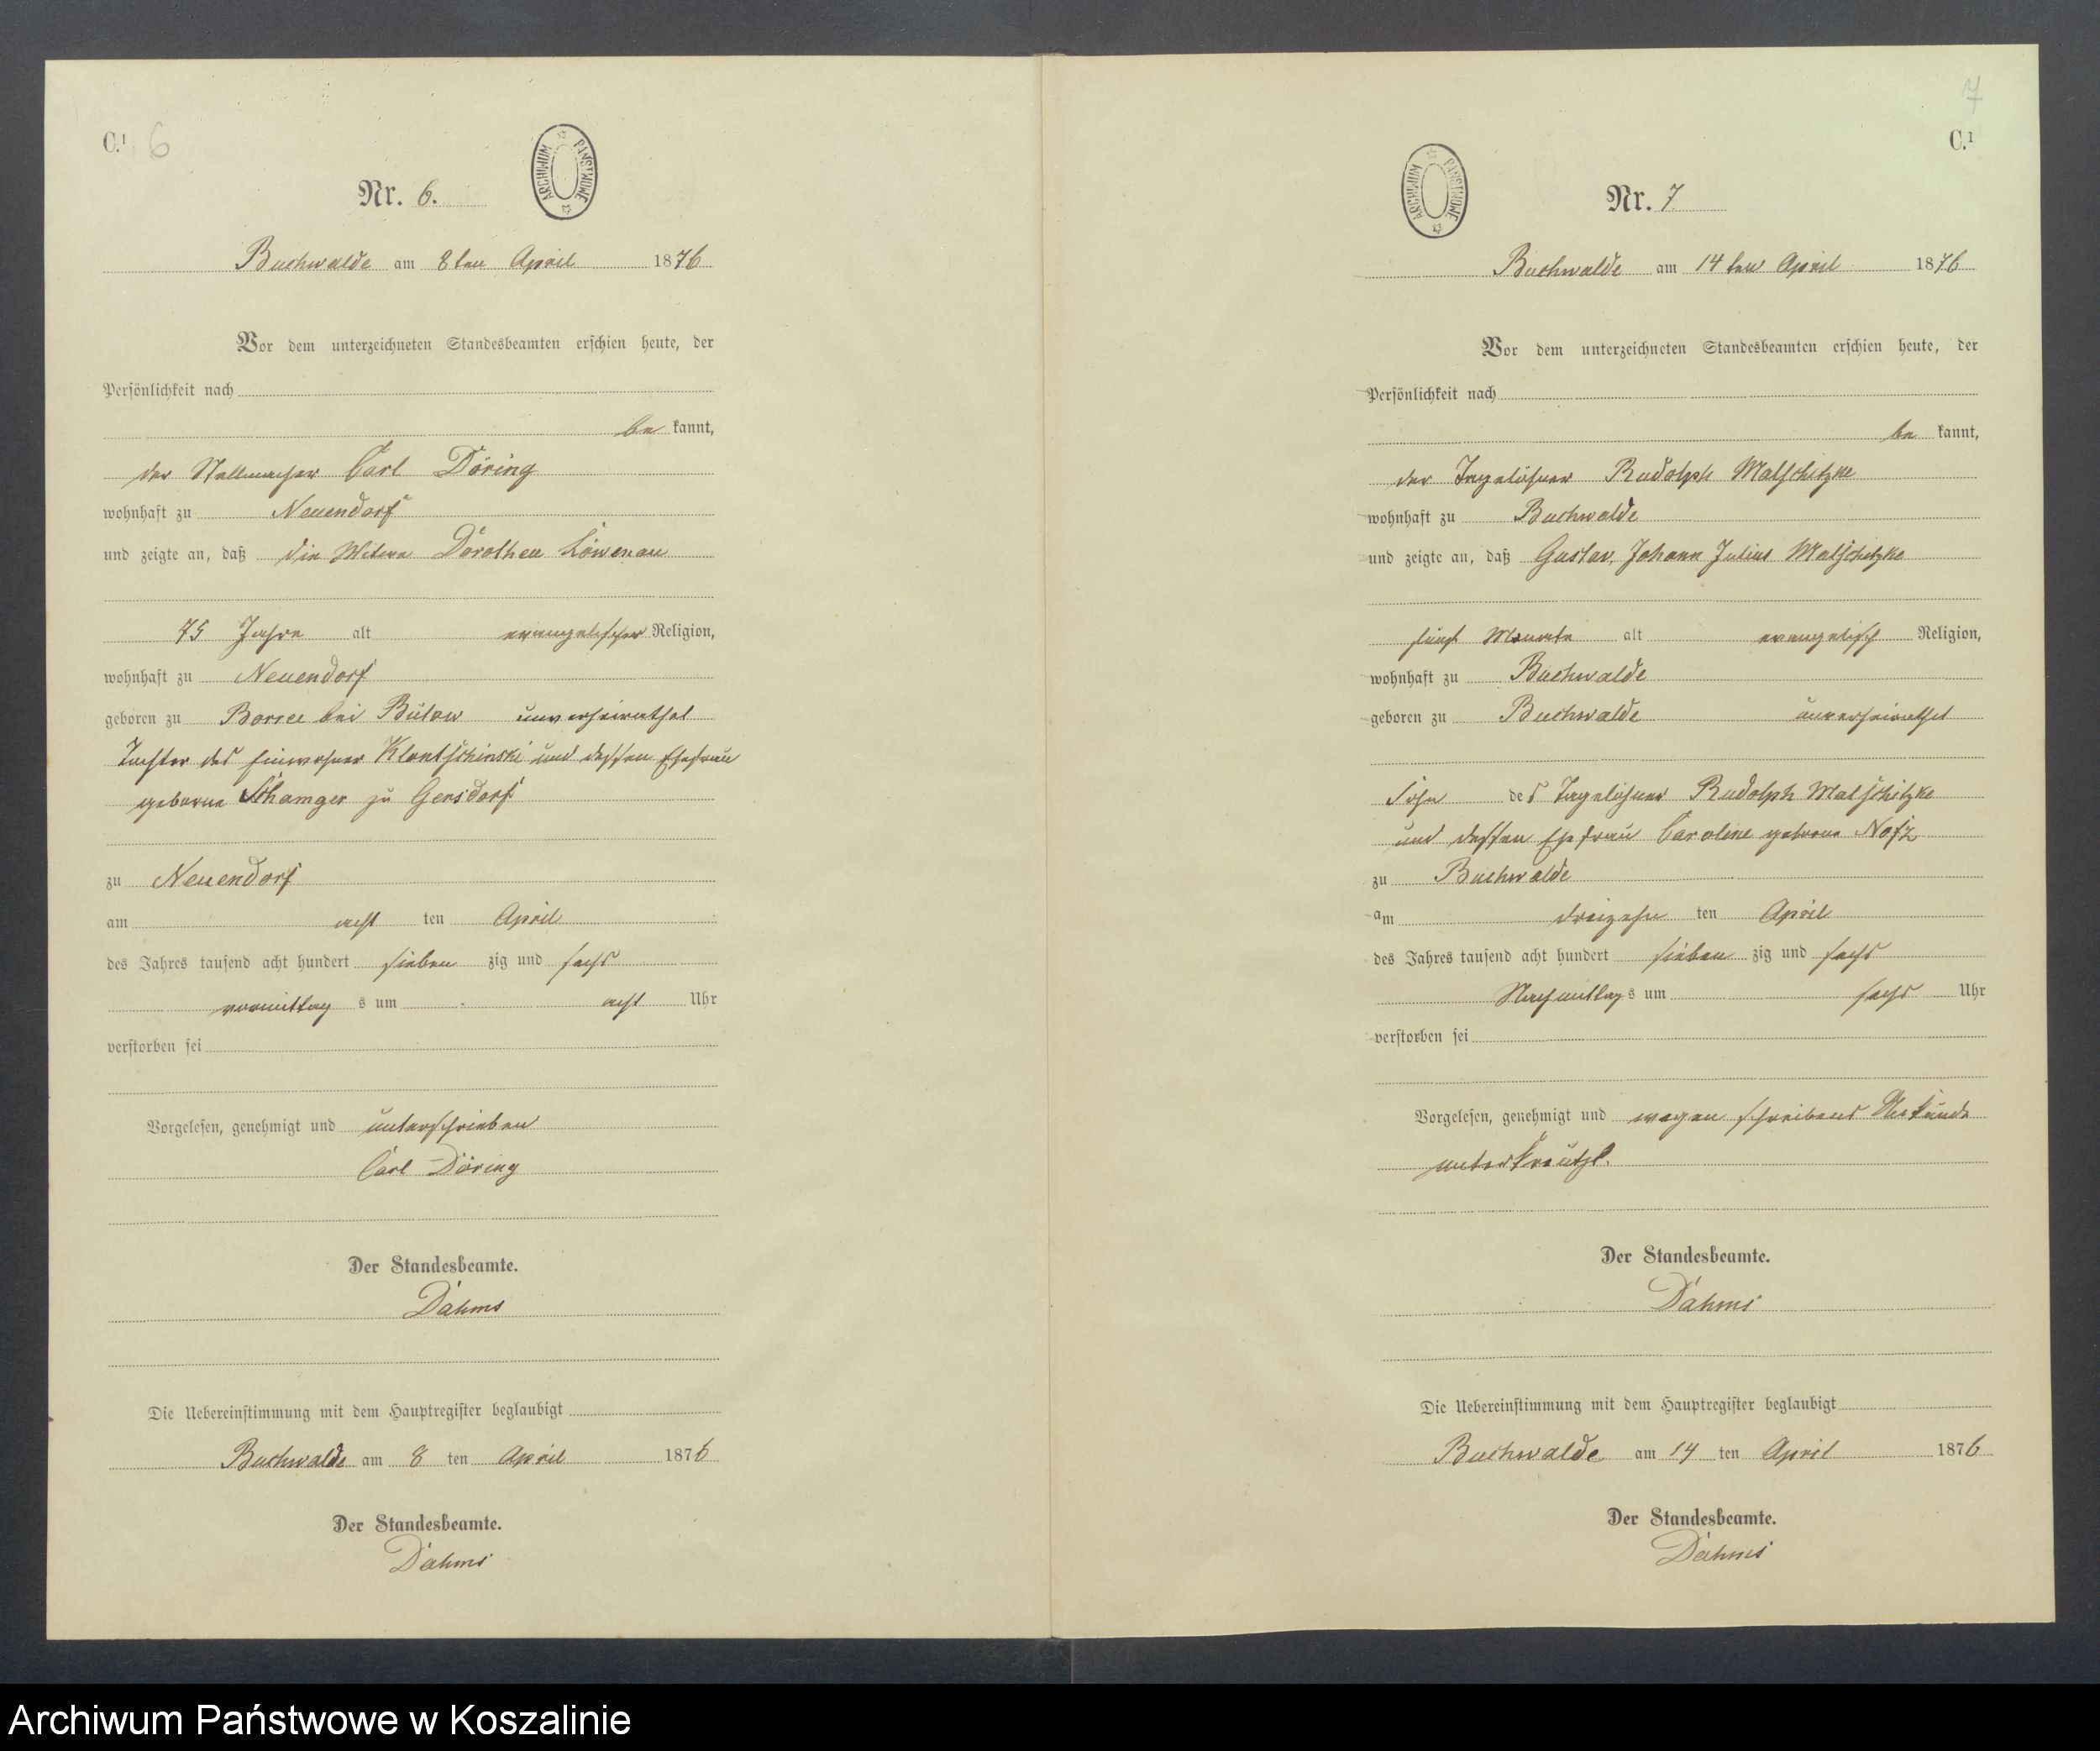 C.1 6
ARCHIWUM PAŃSTWOWE
Nr. 6.
Buchwalde am 8ten April 1876
Vor dem unterzeichneten Standesbeamten erschien heute, der
Persönlichkeit nach
be kannt,
der Stellmacher Carl Döring
wohnhaft zu Neuendorf
und zeigte an, daß die Witwe Dorothea Löwenau
75 Jahre alt evangelischer Religion,
wohnhaft zu Neuendorf
geboren zu bei Bütow unverheirathet
Tochter des Einwohner Klontschinski und dessen Ehefrau
geborne zu Gersdorf
zu Neuendorf
am acht ten April
des Jahres tausend acht hundert sieben zig und sechs
vormittag s um acht Uhr
verstorben sei
Vorgelesen, genehmigt und unterschrieben
Carl Döring
Der Standesbeamte.
Dahms
Die Uebereinstimmung mit dem Hauptregister beglaubigt
Buchwalde am 8 ten April 1876
Der Standesbeamte.
Dahms
7
C.1
ARCHIWUM PAŃSTWOWE
Nr. 7
Buchwalde am 14ten April 1876
Vor dem unterzeichneten Standesbeamten erschien heute, der
Persönlichkeit nach
be kannt,
der Tagelöhner Rudolph Malschitzke
wohnhaft zu Buchwalde
und zeigte an, daß Gustav, Johann Julius Malschitzke
fünf Monate alt evangelisch Religion,
wohnhaft zu Buchwalde
geboren zu Buchwalde unverheirathet
Sohn des Tagelöhner Rudolph Malschitzke
und dessen Ehefrau Caroline geborne
zu Buchwalde
am dreizehn ten April
des Jahres tausend acht hundert sieben zig und sechs
Nachmittag s um sechs Uhr
verstorben sei
Vorgelesen, genehmigt und wegen schreibens Unkunde
unterkreutzt.
Der Standesbeamte.
Dahms
Die Uebereinstimmung mit dem Hauptregister beglaubigt
Buchwalde am 14 ten April 1876
Der Standesbeamte.
Dahms
Archiwum Państwowe w Koszalinie